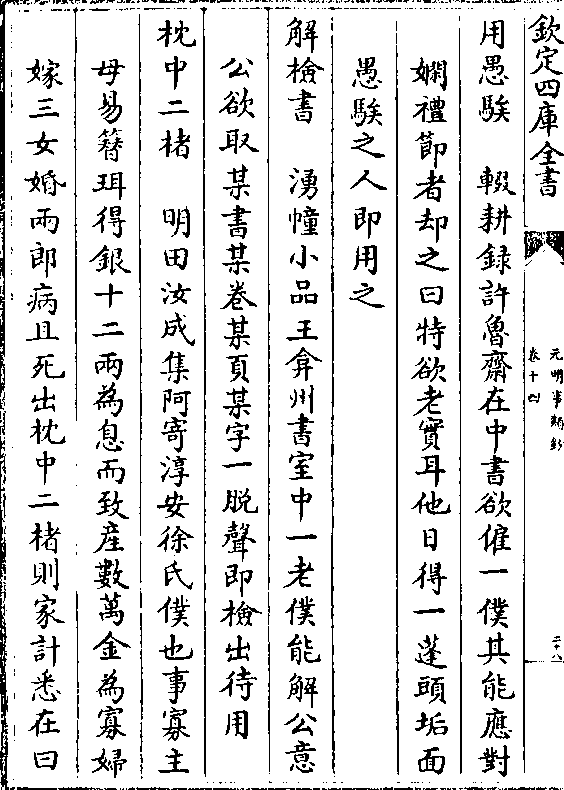 欽定四庫全書
元明事類鈔
卷十四
二十八
用愚騃　輟耕錄許魯齋在中書欲傭一僕其能應對
嫻禮節者却之曰特欲老實耳他日得一蓬頭垢面
愚騃之人即用之
解檢書　湧幢小品王弇州書室中一老僕能解公意
公欲取某書某卷某頁某字一脫聲即檢出待用
枕中二楮　明田汝成集阿寄淳安徐氏僕也事寡主
母易簪珥得銀十二兩為息而致産數萬金為寡婦
嫁三女婚兩郎病且死出枕中二楮則家計悉在曰